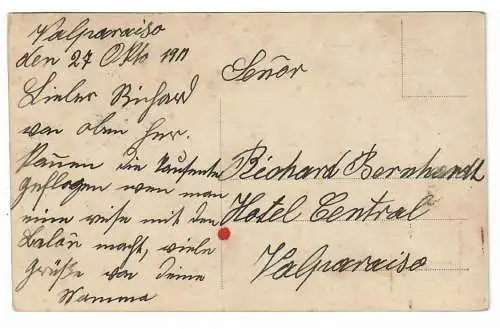 Valparaiso
den 27 Okto 1911
Lieber Richard
von oben her.
kamen die tausente
geflogen wen man
eine reise mit den
Balon macht, viele
Grüße von deine
Mamma
Señor
Richard Bernhardt
Hotel Central
Valparaiso